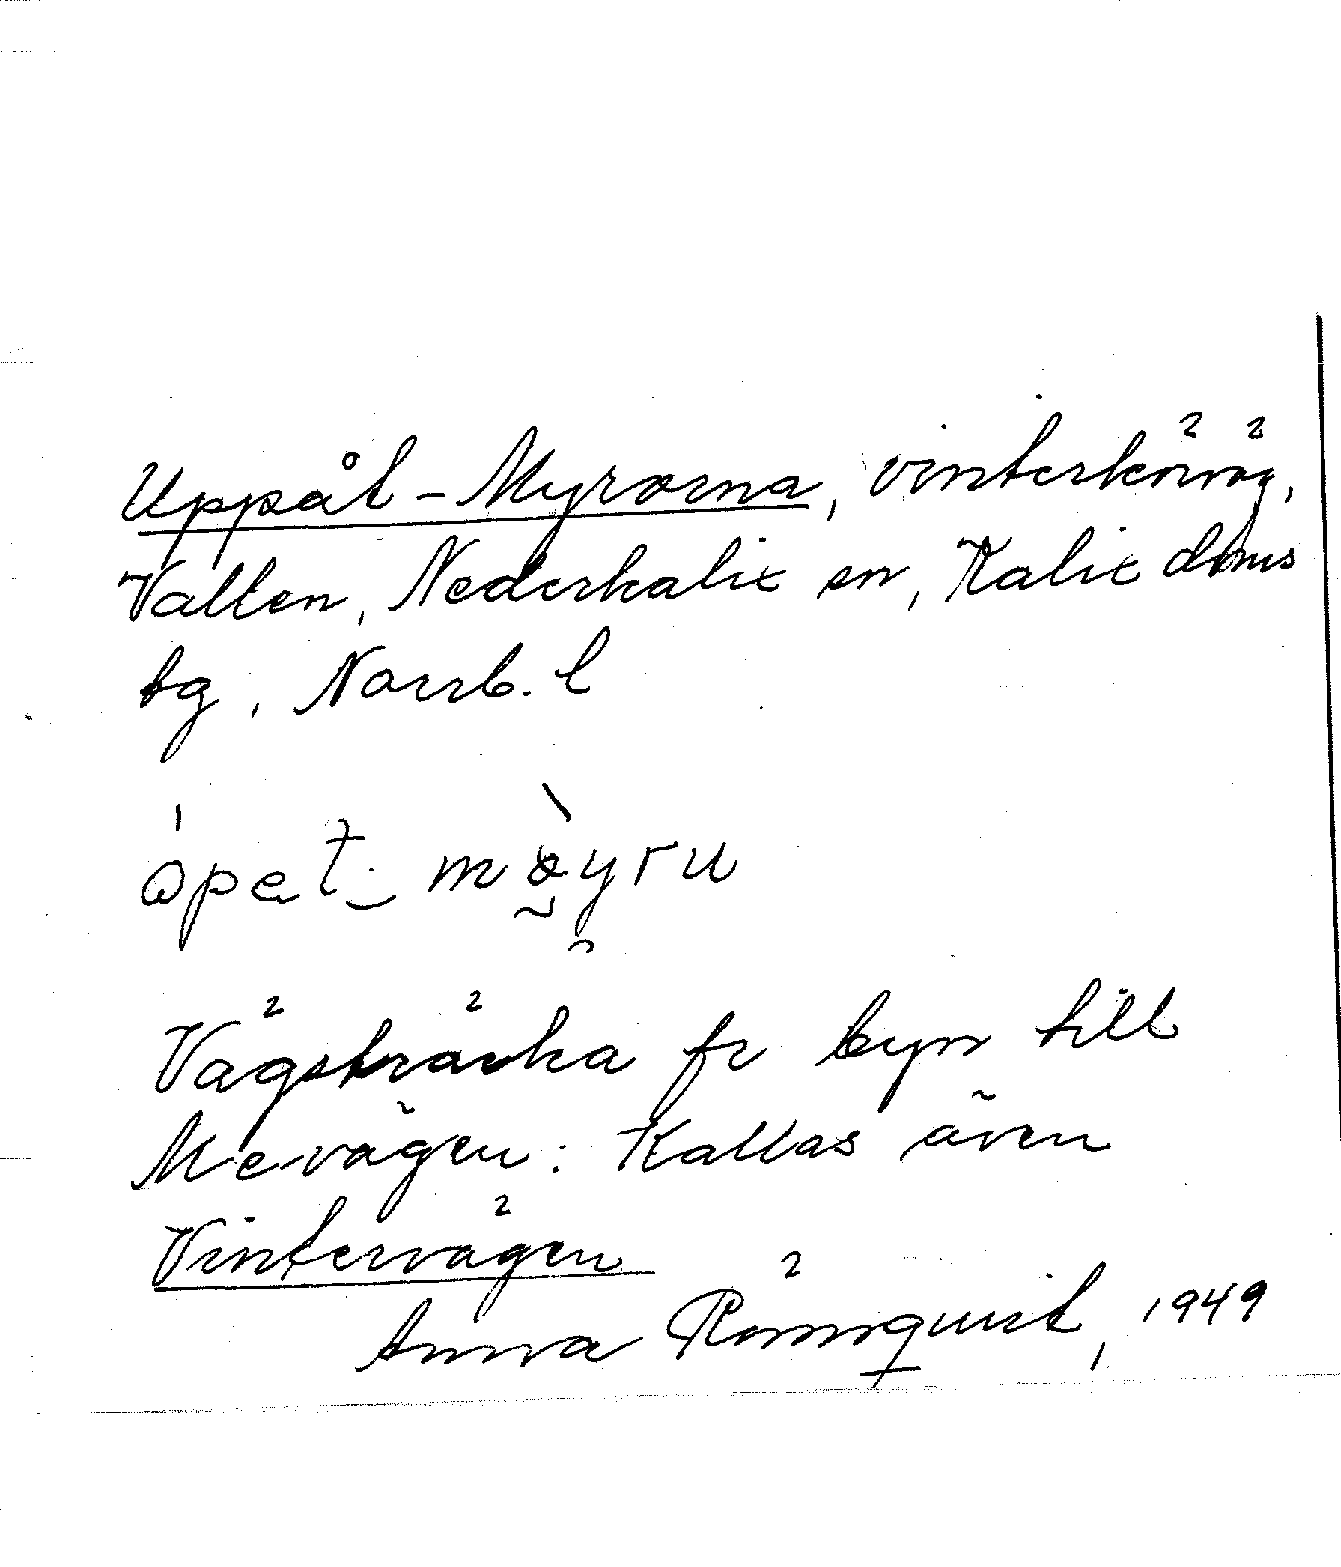 Uppåt-Myrorna, vinterkörväg,
Vallen, Nederkalix sn, Kalix doms
tg, Norrb. l
Vägsträcka fr byn till
Mevägen. Kallas även
Vintervägen
Anna Rönnquist, 1949